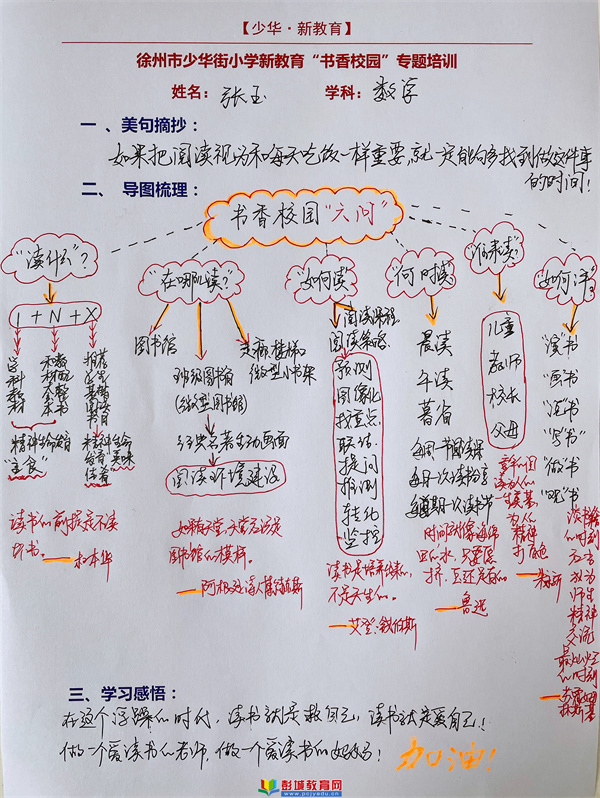 【少华·新教育】
徐州市少华街小学新教育“书香校园”专题培训
姓名：张玉 学科：数学
一、美句摘抄：
如果把阅读视为和每天吃饭一样重要，就一定能够多找到做这件事
的时间！
二、导图梳理：
书香校园“六问”
“读什么”？
1+N+X
学科教材
精神生命的
“主食”
读书的前提是不读
坏书。
——叔本华
“在哪儿读”？
图书馆
班级图书馆
（微型图书馆）
走廊、楼梯
微型小书架
阅读环境建设
如果有天堂，天堂应该是
图书馆的模样。
“如何读”
阅读课程
阅读策略
预测
图像化
找重点
联结
提问
推测
转化
监控
读书是培养出来的，
不是天生的。
“何时读”
晨读
午读
暮省
每月一次读书分享
每学期一次读书节
时间就像海绵
里的水，只要愿
挤，总还是有的
——鲁迅
“谁来读”
儿童
教师
校长
父母
“如何评”？
“演”书
“画”书
“写”书
“做”书
三、学习感悟：
在这个浮躁的时代，读书就是救自己，读书就是爱自己！
做一个爱读书的老师，做一个爱读书的妈妈！加油！
彭城教育网
www.pcjyedu.cn